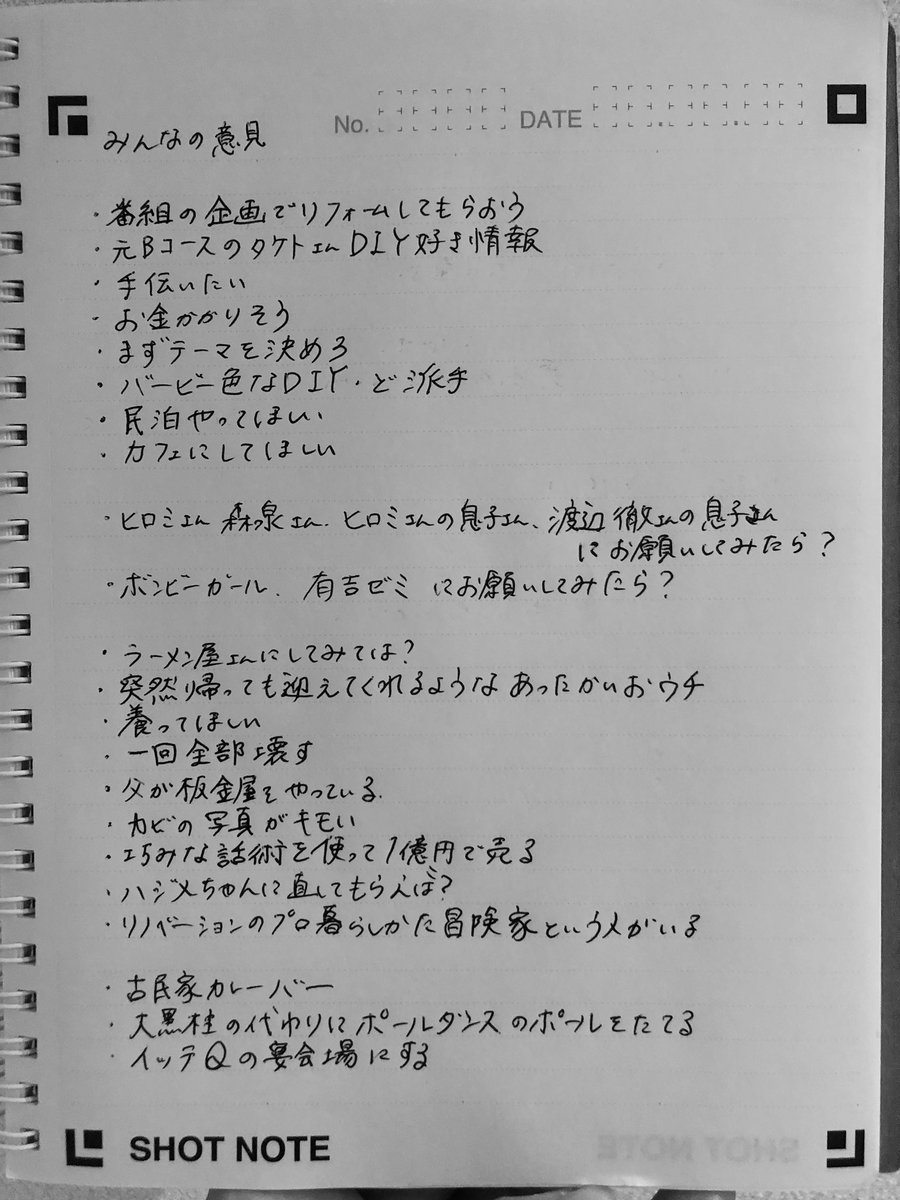 No. DATE
みんなの意見
・番組の企画でリフォームしてもらおう
・元Bコースのタケトさん DIY好き情報
・手伝いたい
・お金かかりそう
・まずテーマを決めろ
・バービー色なDIY・ど派手
・民泊やってほしい
・カフェにしてほしい
・ヒロミさん 森泉さん、ヒロミさんの息子さん、渡辺徹さんの息子さん
にお願いしてみたら?
・ボンビーガール、有吉ゼミ にお願いしてみたら?
・ラーメン屋さんにしてみては?
・突然帰っても迎えてくれるようなあったかいおウチ
・養ってほしい
・一回全部壊す
・父が板金屋をやっている.
・カビの写真がキモい
・巧みな話術を使って1億円で売る
・ハジメちゃんに直してもらえば?
・リノベーションのプロ暮らしかた冒険家という〆がいる
・古民家カレーバー
・大黒柱の代わりにポールダンスのポールをたてる
・イッテQの宴会場にする
SHOT NOTE